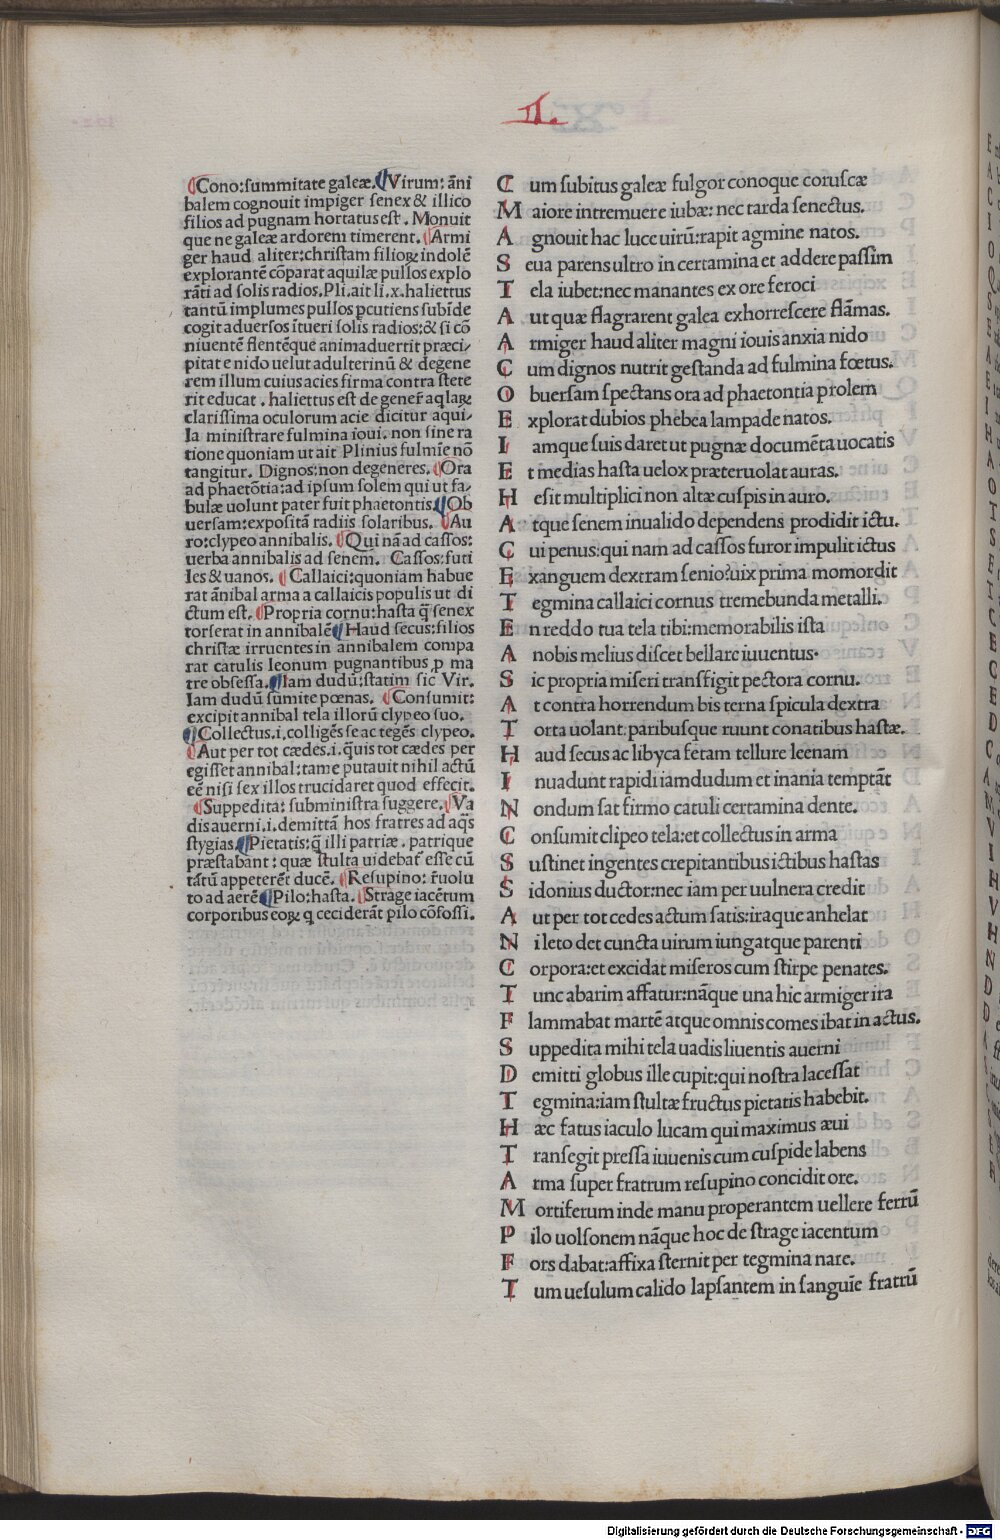 II.
Cono:summitate galeæ. Virum: āni
balem cognouit impiger senex & illico
filios ad pugnam hortatus est. Monuit
que ne galeæ ardorem timerent. Armi
ger haud aliter:christam filioꝝ indolē
explorantē cōparat aquilæ pullos explo
rāti ad solis radios. Pli. ait li. x. haliettus
tantū implumes pullos ꝑcutiens subīde
cogit aduersos ītueri solis radios: & si cō
niuentē flentēque animaduertit præci/
pitat e nido uelut adulterinū & degene
rem illum cuius acies firma contra stete
rit educat. haliettus est de gener̄ aqlaꝝ
clarissima oculorum acie dicitur aqui/
la ministrare fulmina ioui. non sine ra
tione quoniam ut ait Plinius fulmīe nō
tangitur. Dignos: non degeneres. Ora
ad phaetōtia: ad ipsum solem qui ut fa/
bulæ uolunt pater fuit phaetontis. Ob
uersam: expositā radiis solaribus. Au
ro: clypeo annibalis. Qui nā ad cassos:
uerba annibalis ad senem. Cassos: futi
les & uanos. Callaici: quoniam habue
rat ānibal arma a callaicis populis ut di
ctum est. Propria cornu: hasta q̄ senex
torserat in annibalē Haud secus: filios
christæ irruentes in annibalem compa
rat catulis leonum pugnantibus ꝓ ma
tre obsessa. Iam dudū: statim sic Vir.
Iam dudū sumite pœnas. Consumit:
excipit annibal tela illorū clypeo suo.
Collectus. i. colligēs se ac tegēs clypeo.
Aut per tot cædes. i. q̄uis tot cædes per
egisset annibal: tamē putauit nihil actū
eē nisi sex illos trucidaret quod effecit.
Suppedita: subministra suggere. Va
dis auerni. i. demittā hos fratres ad aq̄s
stygias. Pietatis: q̄ illi patriæ. patrique
præstabant: quæ stulta uidebat̄ esse cū
tātū appeterēt ducē. Resupino: r̄uolu
to ad aerē Pilo: hasta. Strage iacētum
corporibus eoꝝ q ceciderāt pilo cōfossi.
Cum subitus galeæ fulgor conoque coruscæ
Maiore intremuere iubæ: nec tarda senectus.
Agnouit hac luce uirū: rapit agmine natos.
Seua parens ultro in certamina et addere passim
Tela iubet: nec manantes ex ore feroci
Aut quæ flagrarent galea exhorrescere flāmas.
Armiger haud aliter magni iouis anxia nido
Cum dignos nutrit gestanda ad fulmina fœtus.
Obuersam spectans ora ad phaetontia prolem
Explorat dubios phebea lampade natos.
Iamque suis daret ut pugnæ documēta uocatis
Et medias hasta uelox præteruolat auras.
Hesit multiplici non altæ cuspis in auro.
Atque senem inualido dependens prodidit ictu.
Cui penus: qui nam ad cassos furor impulit ictus
Exanguem dextram senio? uix prima momordit
Tegmina callaici cornus tremebunda metalli.
En reddo tua tela tibi: memorabilis ista
A nobis melius discet bellare iuuentus.
Sic propria miseri transfigit pectora cornu.
At contra horrendum bis terna spicula dextra
Torta uolant. paribusque ruunt conatibus hastæ.
Haud secus ac libyca fetam tellure leenam
Inuadunt rapidi iamdudum et inania temptāt
Nondum sat firmo catuli certamina dente.
Consumit clipeo tela: et collectus in arma
Sustinet ingentes crepitantibus ictibus hastas
Sidonius ductor: nec iam per uulnera credit
Aut per tot cedes actum satis: iraque anhelat
Ni leto det cuncta uirum iungatque parenti
Corpora: et excidat miseros cum stirpe penates.
Tunc abarim affatur: nāque una hic armiger ira
Flammabat martē atque omnis comes ibat in actus.
Suppedita mihi tela uadis liuentis auerni
Demitti globus ille cupit: qui nostra lacessat
Tegmina: iam stultæ fructus pietatis habebit.
Hæc fatus iaculo lucam qui maximus æui
Transegit pressa iuuenis cum cuspide labens
Arma super fratrum resupino concidit ore.
Mortiferum inde manu properantem uellere ferrū
Pilo uolsonem nāque hoc de strage iacentum
Fors dabat: affixa sternit per tegmina nare.
Tum uesulum calido lapsantem in sanguīe fratrū
Digitalisierung gefördert durch die Deutsche Forschungsgemeinschaft - DFG